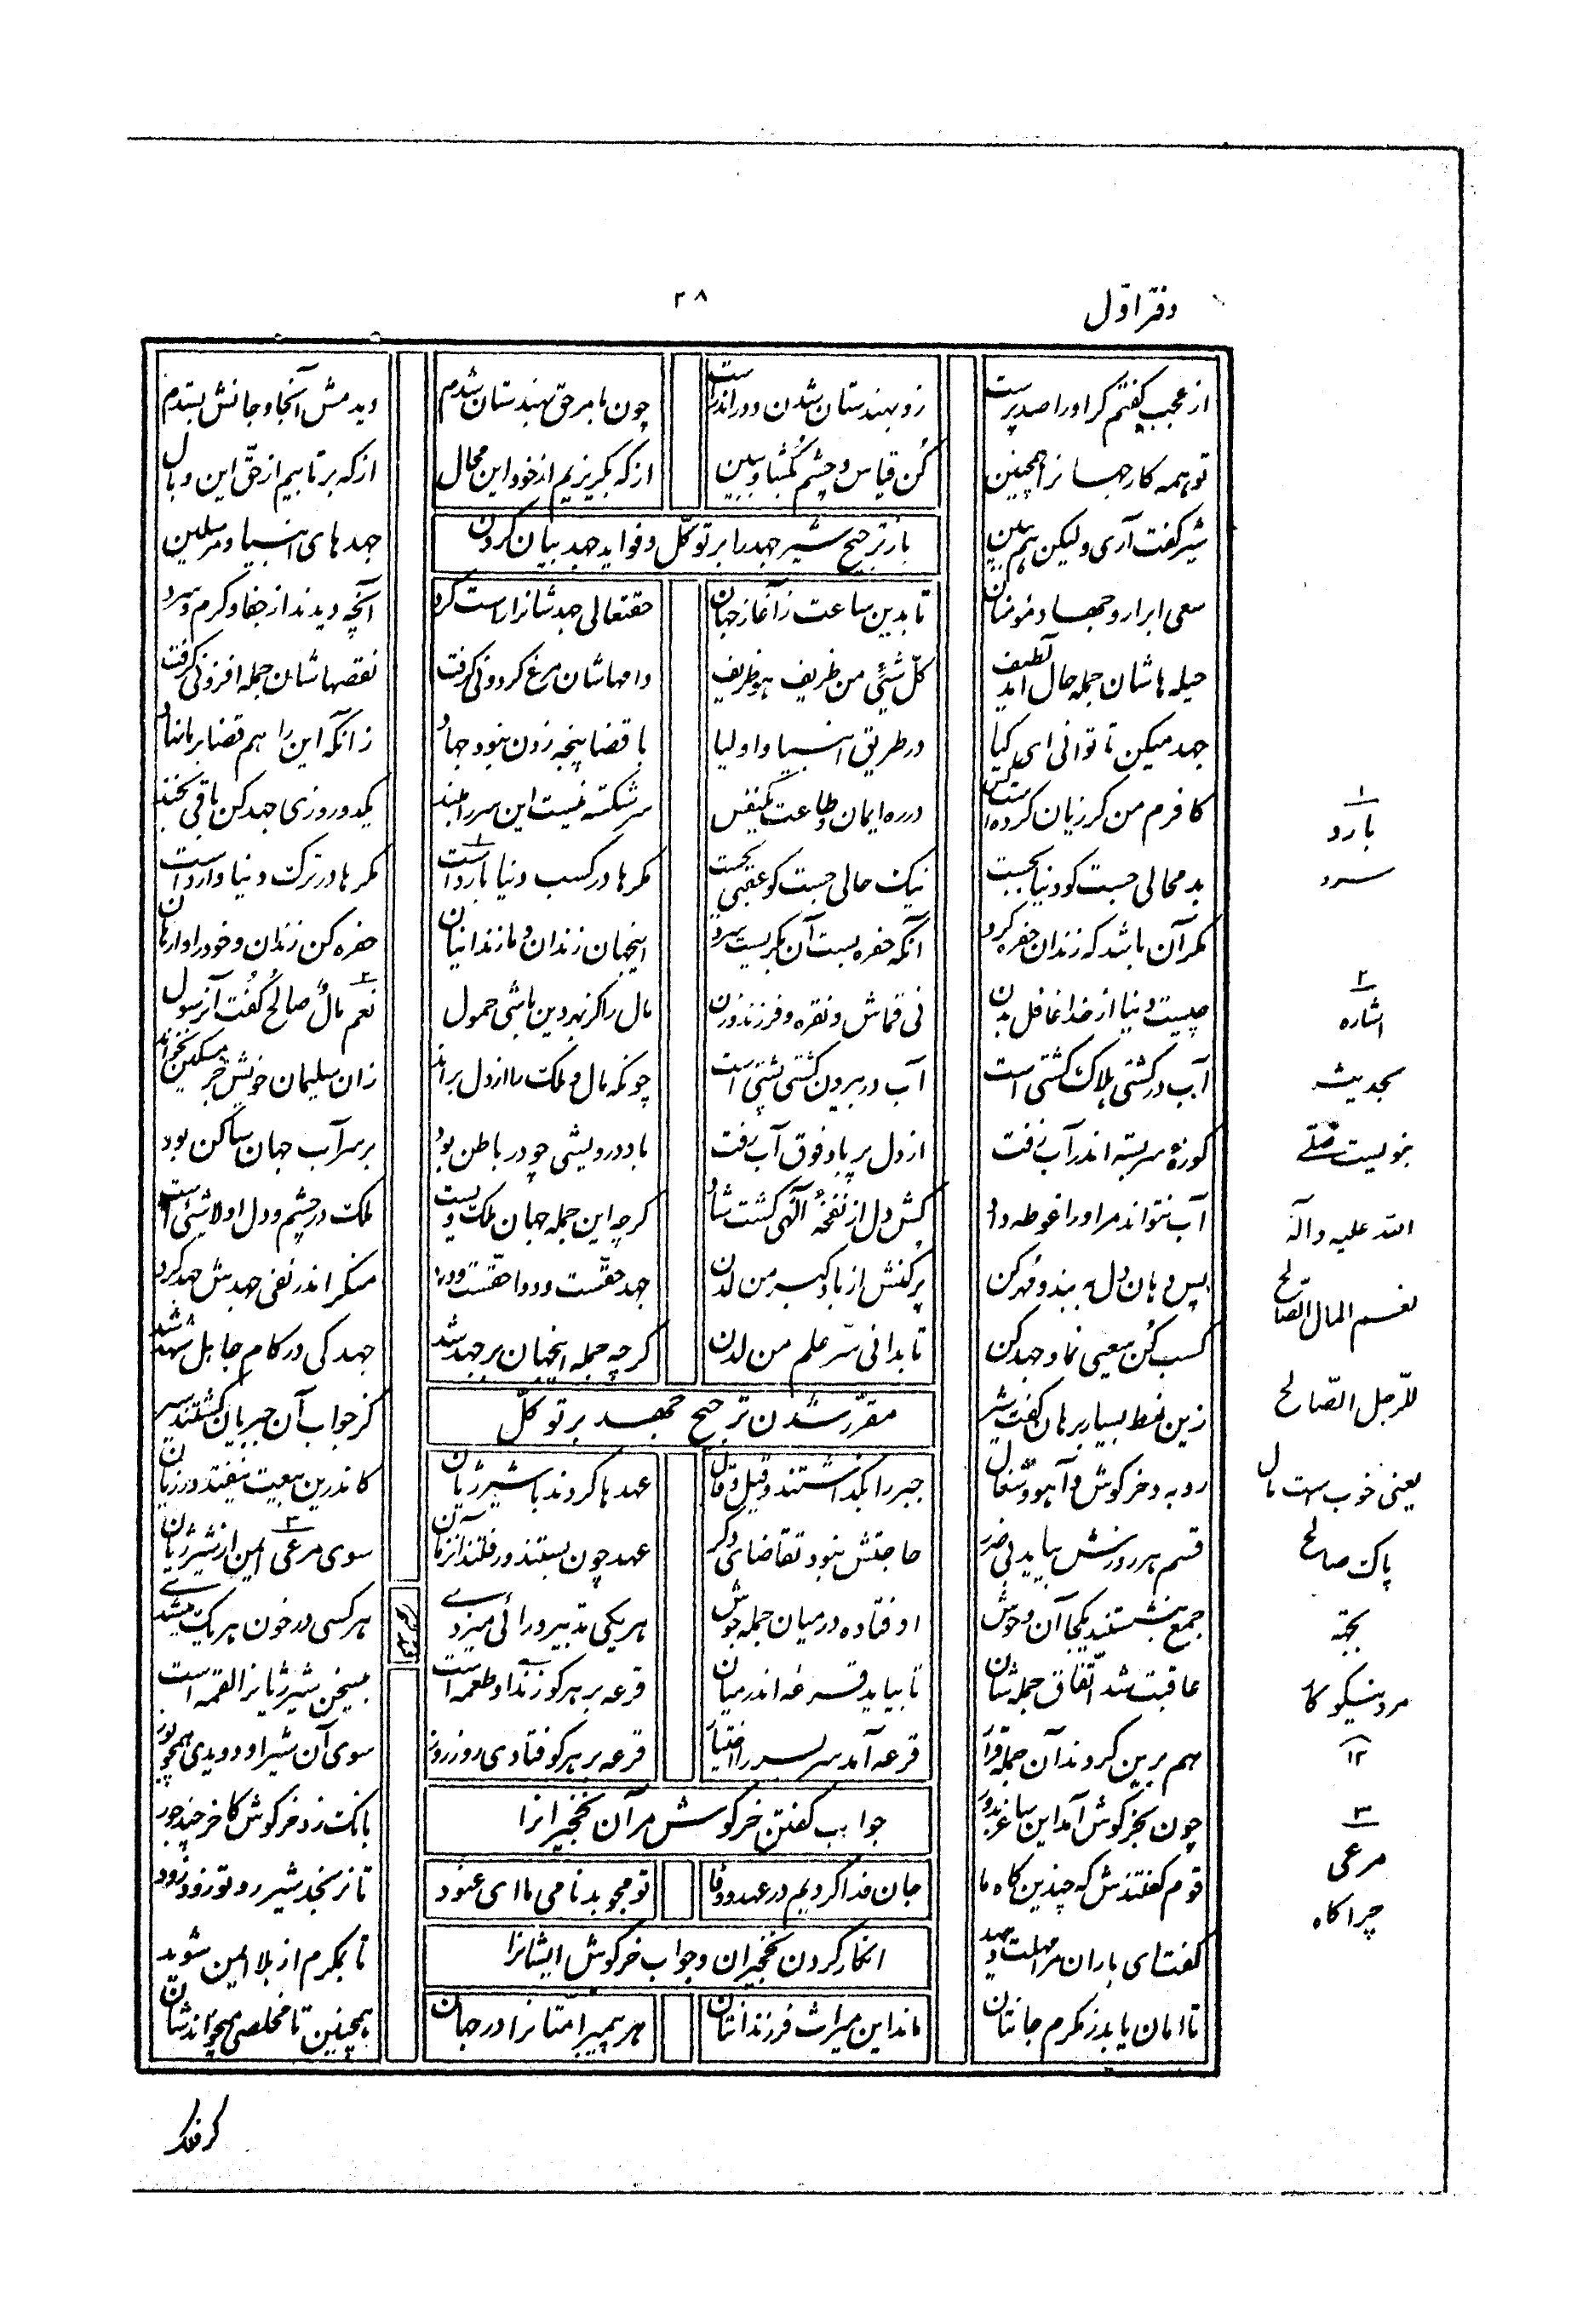 دفتر اوّل
۲۸
از عجب گفتم گر اورا صد پرست زو بهندستان شدن دور اندرست چون بامر حق بهندستان شدم دیدمش آنجا و جانش بستدم
تو همه کار جهانرا همچنین کن قیاس و چشم بگشا و ببین از که بگریزیم از خود این محال از که برتابیم از حق این وبال
باز ترجیح شیر جهد را بر توکّل و فواید جهد بیان کردن
شیر گفت آری ولیکن هم ببین جهدهای انبیا و مرسلین
سعی ابرار و جهاد مؤمنان تا بدین ساعت ز آغاز جهان حقتعالی جهدشانرا راست کرد آنچه دیدند از جفا و گرم و سرد
حیله‌هاشان جمله حال آمد لطیف کلّ شیئی من ظریف هو ظریف دامهاشان مرغ گردونی گرفت نقصهاشان جمله افزونی گرفت
جهد میکن تا توانی ای کیا در طریق انبیا و اولیا با قضا پنجه زدن نبود جهاد زانکه این را هم قضا بر ما نهاد
کافرم من گر زیان کرده است کس در ره ایمان و طاعت یکنفس سر شکسته نیست این سر را مبند یکدو روزی جهد کن باقی بخند
بد محالی جست کو دنیا بجست نیک حالی جست کو عقبی بجست مکرها در کسب دنیا بارد است مکرها در ترک دنیا وارد است
مکر آن باشد که زندان حفره کرد آنکه حفره بست آن مکریست سرد اینجهان زندان و ما زندانیان حفره کن زندان و خود را وارهان
چیست دنیا از خدا غافل بدن نی قماش و نقره و فرزند و زن مال را کز بهر دین باشی حمول نعم مالٌ صالحٌ گفت آن رسول
آب در کشتی هلاک کشتی است آب در بیرون کشتی پشتی است چونکه مال و ملک را از دل براند زان سلیمان خویش جز مسکین نخواند
کوزهٔ سر بسته اندر آب رفت از دل پر باد فوق آب رفت باد درویشی چو در باطن بود بر سر آب جهان ساکن بود
آب نتواند مر اورا غوطه داد کش دل از نفخهٔ الهی گشت شاد گرچه این جمله جهان ملک ویست ملک در چشم و دل او لاشیئی است
پس دهان دل ببند و مهر کن پر کنش از باد کبر من لدن جهد حقست و دوا حقست و درد منکر اندر نفی جهدش جهد کرد
کسب کن سعیی نما و جهد کن تا بدانی سرّ علم من لدن گرچه جمله اینجهان بر جهد شد جهد کی در کام جاهل شهد شد
مقرّر شدن ترجیح جهد بر توکّل
زین نمط بسیار برهان گفت شیر کز جواب آن جبریان گشتند سیر
روبه و خرگوش و آهو و شغال جبر را بگذاشتند و قیل و قال عهدها کردند با شیر ژیان کاندرین بیعت نیفتد در زیان
قسم هر روزش بیاید بی ضرر حاجتش نبود تقاضای دگر عهد چون بستند و رفتند آنزمان سوی مرعی ایمن از شیر ژیان
جمع بنشستند یکجا آن وحوش اوفتاده در میان جمله جوش هر یکی تدبیر و رائی میزدی هر کسی در خون هر یک میشدی
عاقبت شد اتّفاق جمله‌شان تا بیاید قرعه اندر میان قرعه بر هر کو زند او طعمه است بیسخن شیر ژیانرا لقمه است
هم برین کردند آن جمله قرار قرعه آمد سر بسر را اختیار قرعه بر هر کو فتادی روز روز سوی آن شیر او دویدی همچو یوز
جواب گفتن خرگوش مر آن نخجیرانرا
چون بخرگوش آمد این ساغر بدور بانک زد خرگوش کاخر چند جور
قوم گفتندش که چندین گاه ما جان فدا کردیم در عهد و وفا تو مجو بدنامی ما ای عنود تا نرنجد شیر رو تو زود زود
انکار کردن نخجیران و جواب خرگوش ایشانرا
گفت ای یاران مرا مهلت دهید تا بمکرم از بلا ایمن شوید
تا امان یابد ز مکرم جانتان ماند این میراث فرزندانتان هر پیمبر امّتانرا در جهان همچنین تا مخلصی میخواندشان
۱
بارد
سرد
۲
اشاره
بحدیث
نبویست صلّی
الله علیه و آله
نعم المال الصّالح
للرّجل الصّالح
یعنی خوب است مال
پاک صالح
بجهة
مرد نیکو کار
۱۲
۳
مرعی
چراگاه
گر فلک